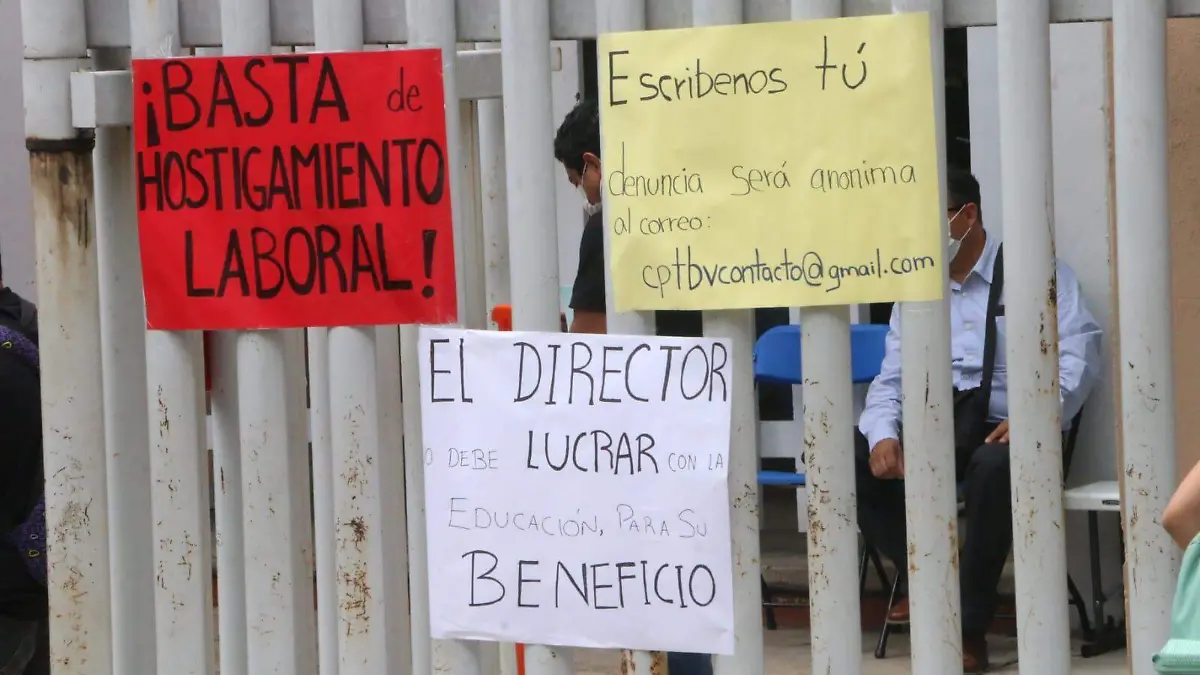 ¡BASTA de
HOSTIGAMIENTO
LABORAL!
Escribenos tú
denuncia será anonima
al correo:
cptbvcontacto@gmail.com
EL DIRECTOR
O DEBE LUCRAR CON LA
EDUCACIÓN, PARA SU
BENEFICIO